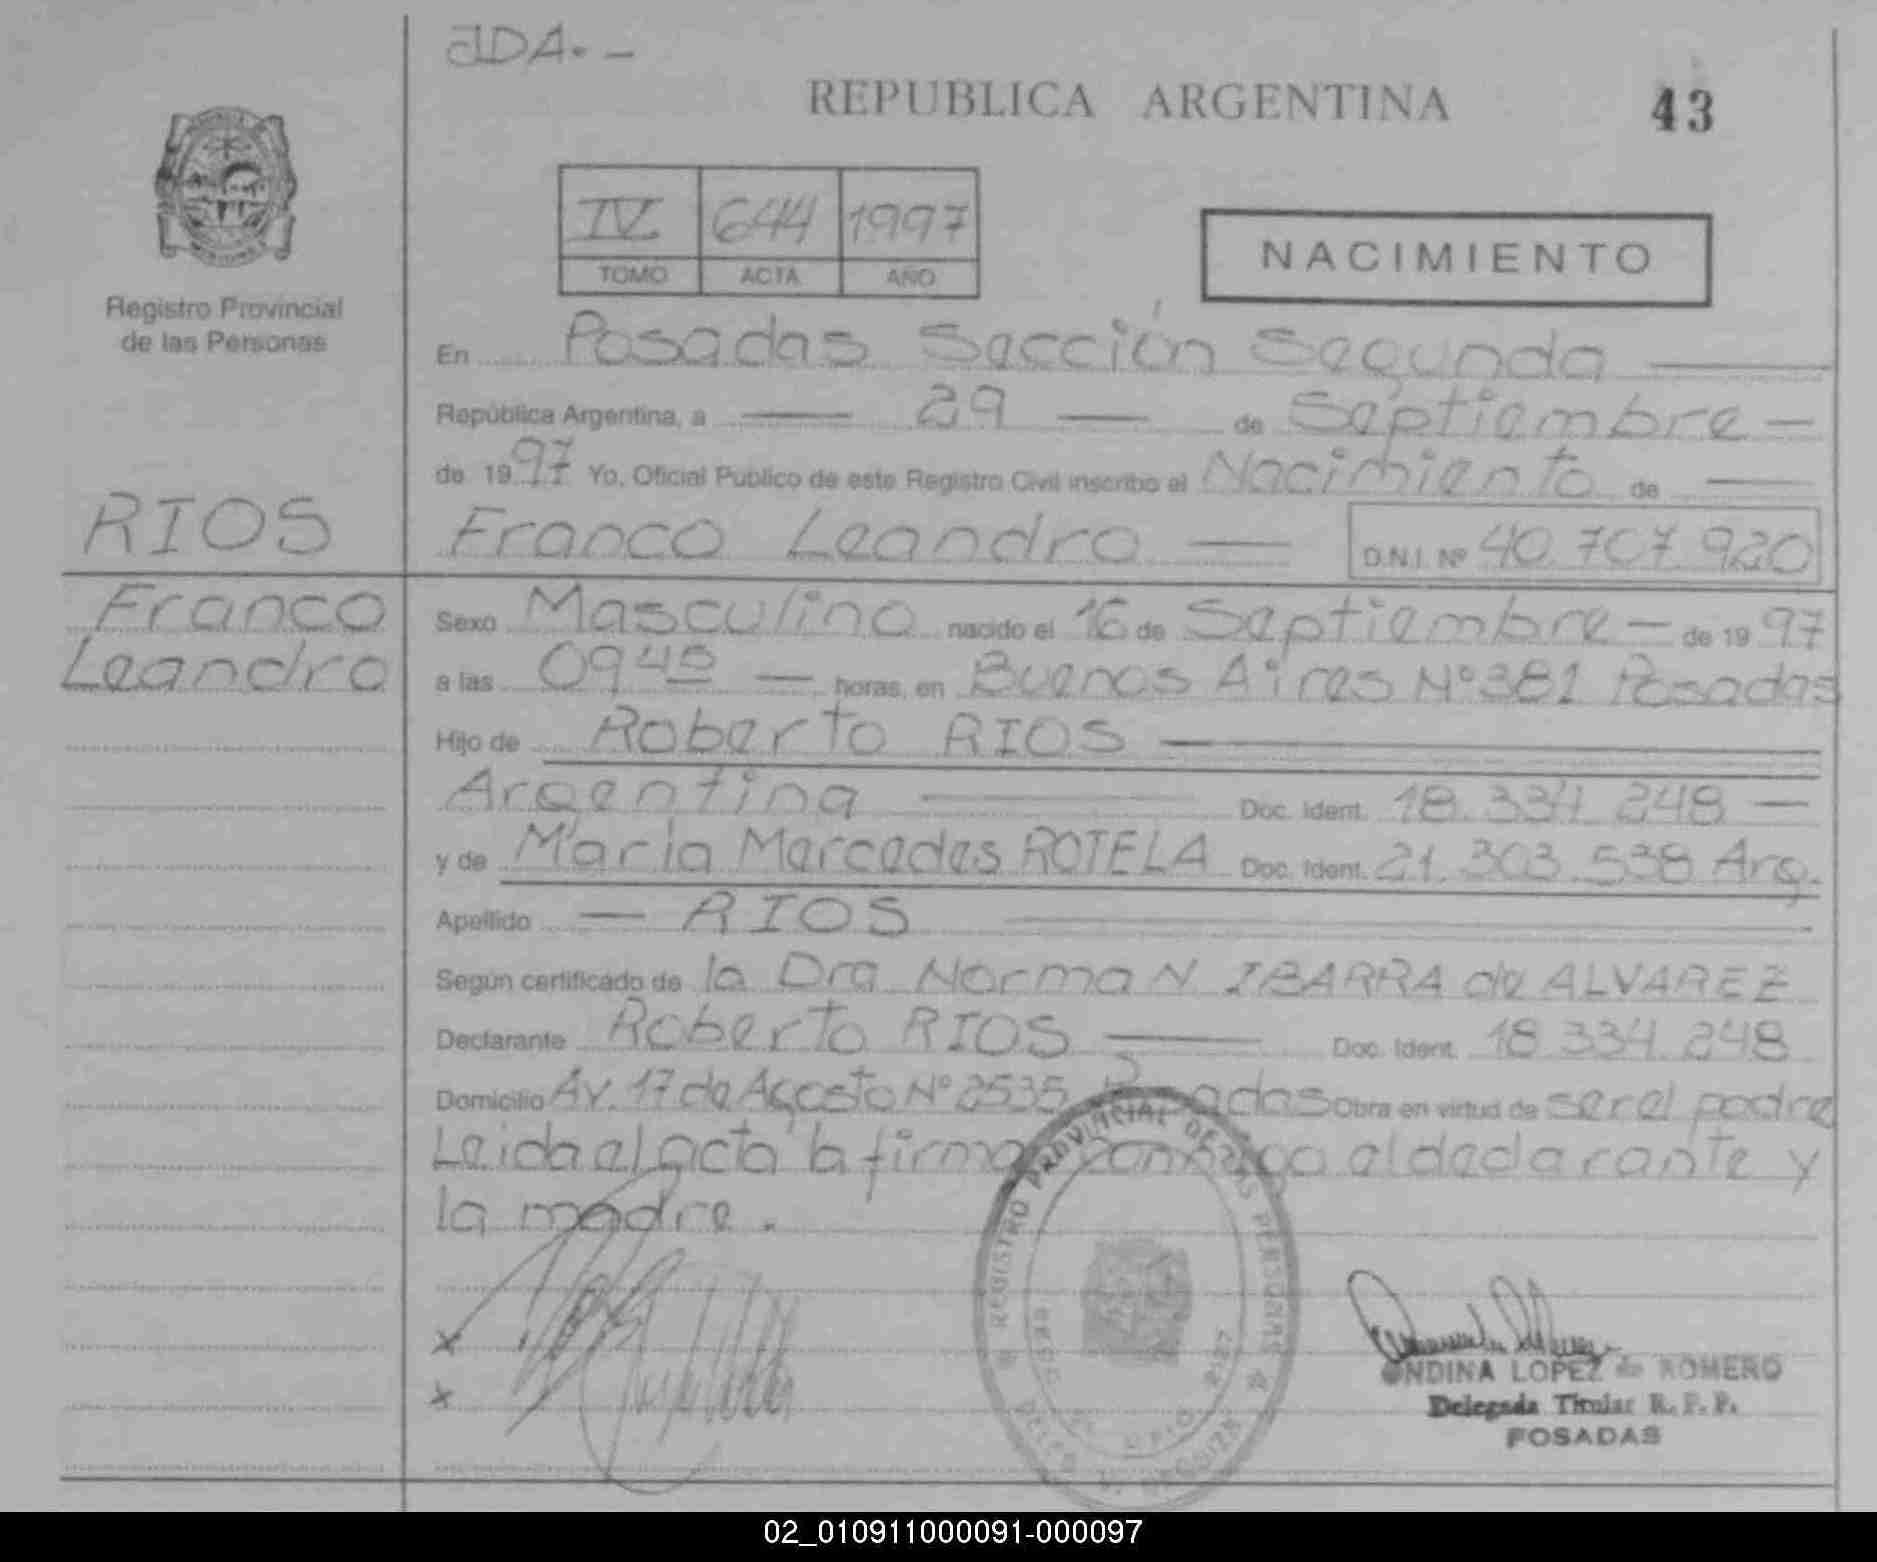 JDA. -
REPUBLICA ARGENTINA 43
IV 644 1997
TOMO ACTA AÑO
NACIMIENTO
Registro Provincial
de las Personas
En Posadas Sección Segunda
República Argentina, a 29 de Septiembre
de 1997 Yo, Oficial Publico de este Registro Civil inscribo el Nacimiento de
RIOS Franco Leandro D.N.I. Nº 40.707.920
Franco Sexo Masculino nacido el 16 de Septiembre de 1997
Leandro a las 09 45 horas, en Buenos Aires Nº 381 Posadas
Hijo de Roberto RIOS
Argentina Doc. Ident. 18.334.248
y de María Mercedes ROTELA Doc. Ident. 21.303.538 Arg.
Apellido RIOS
Según certificado de la Dra Norma N. IBARRA de ALVAREZ
Declarante Roberto RIOS Doc. Ident. 18.334.248
Domicilio Av. 17 de Agosto Nº 2535 Posadas Obra en virtud de ser el padre
Leida el acta la firma conmigo el declarante y
la madre.
REGISTRO PROVINCIAL DE LAS PERSONAS
ONDINA LOPEZ de ROMERO
Delegada Titular R. P. P.
POSADAS
02_010911000091-000097